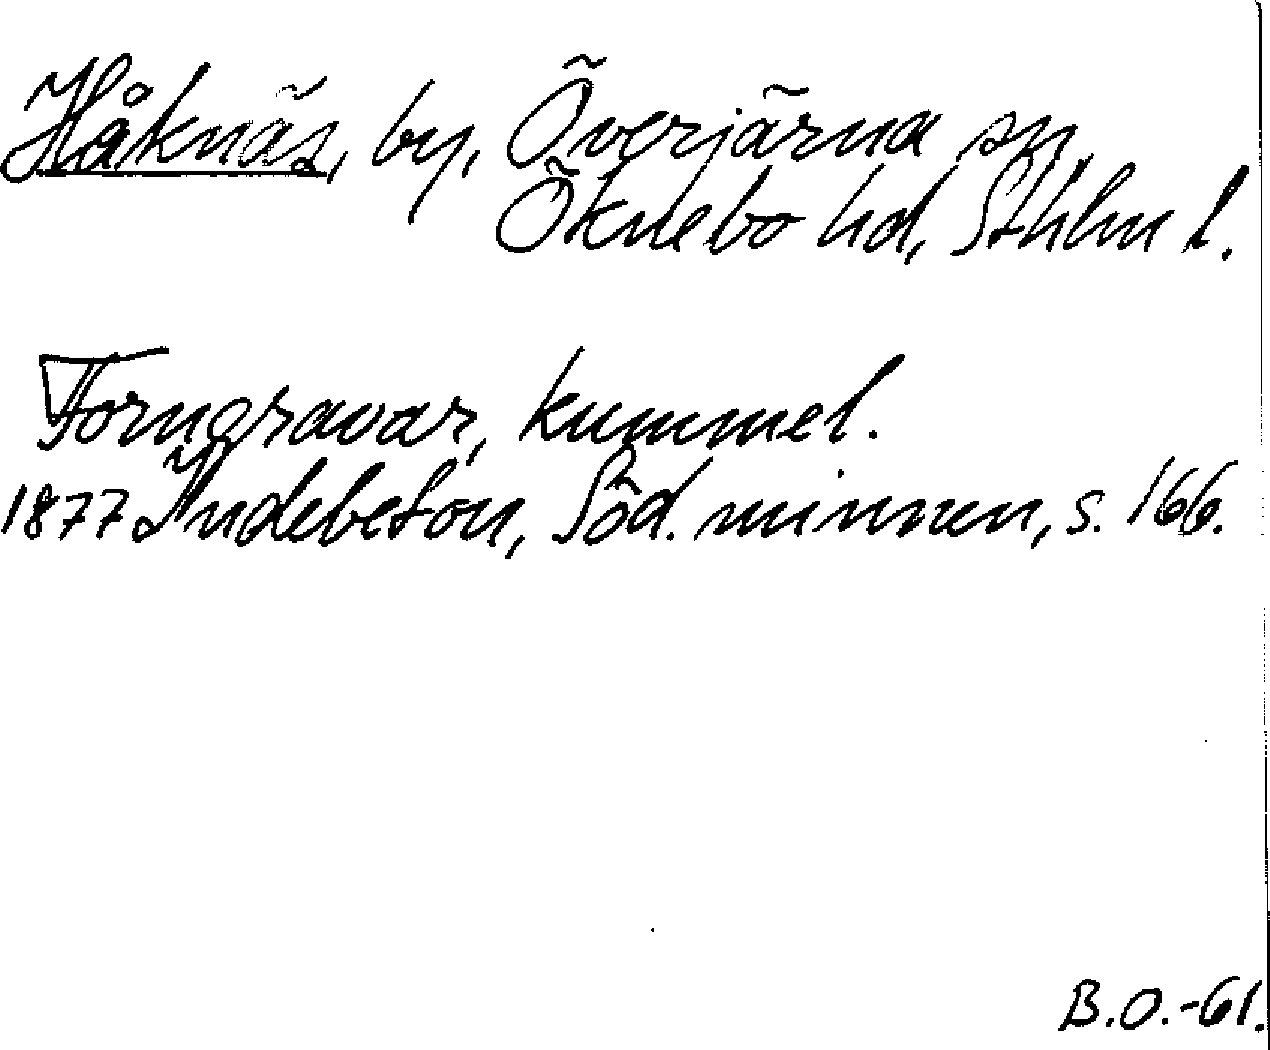 Håknäs, by, Överjärna sn,
Öknebo hd, Sthlm l.
Forngravar, kummel.
1877 Indebetou, Söd. minnen, s. 166.
B.O.-61.